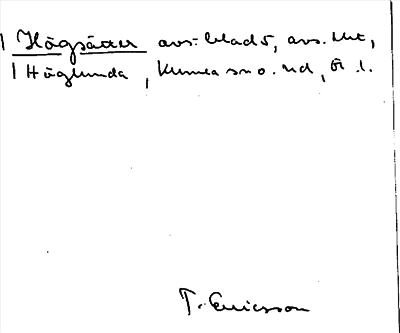 Högsätter avs: blad 5, avs. Mt,
Höglunda, Kumla sn o. hd, Ö l.
T. Ericsson